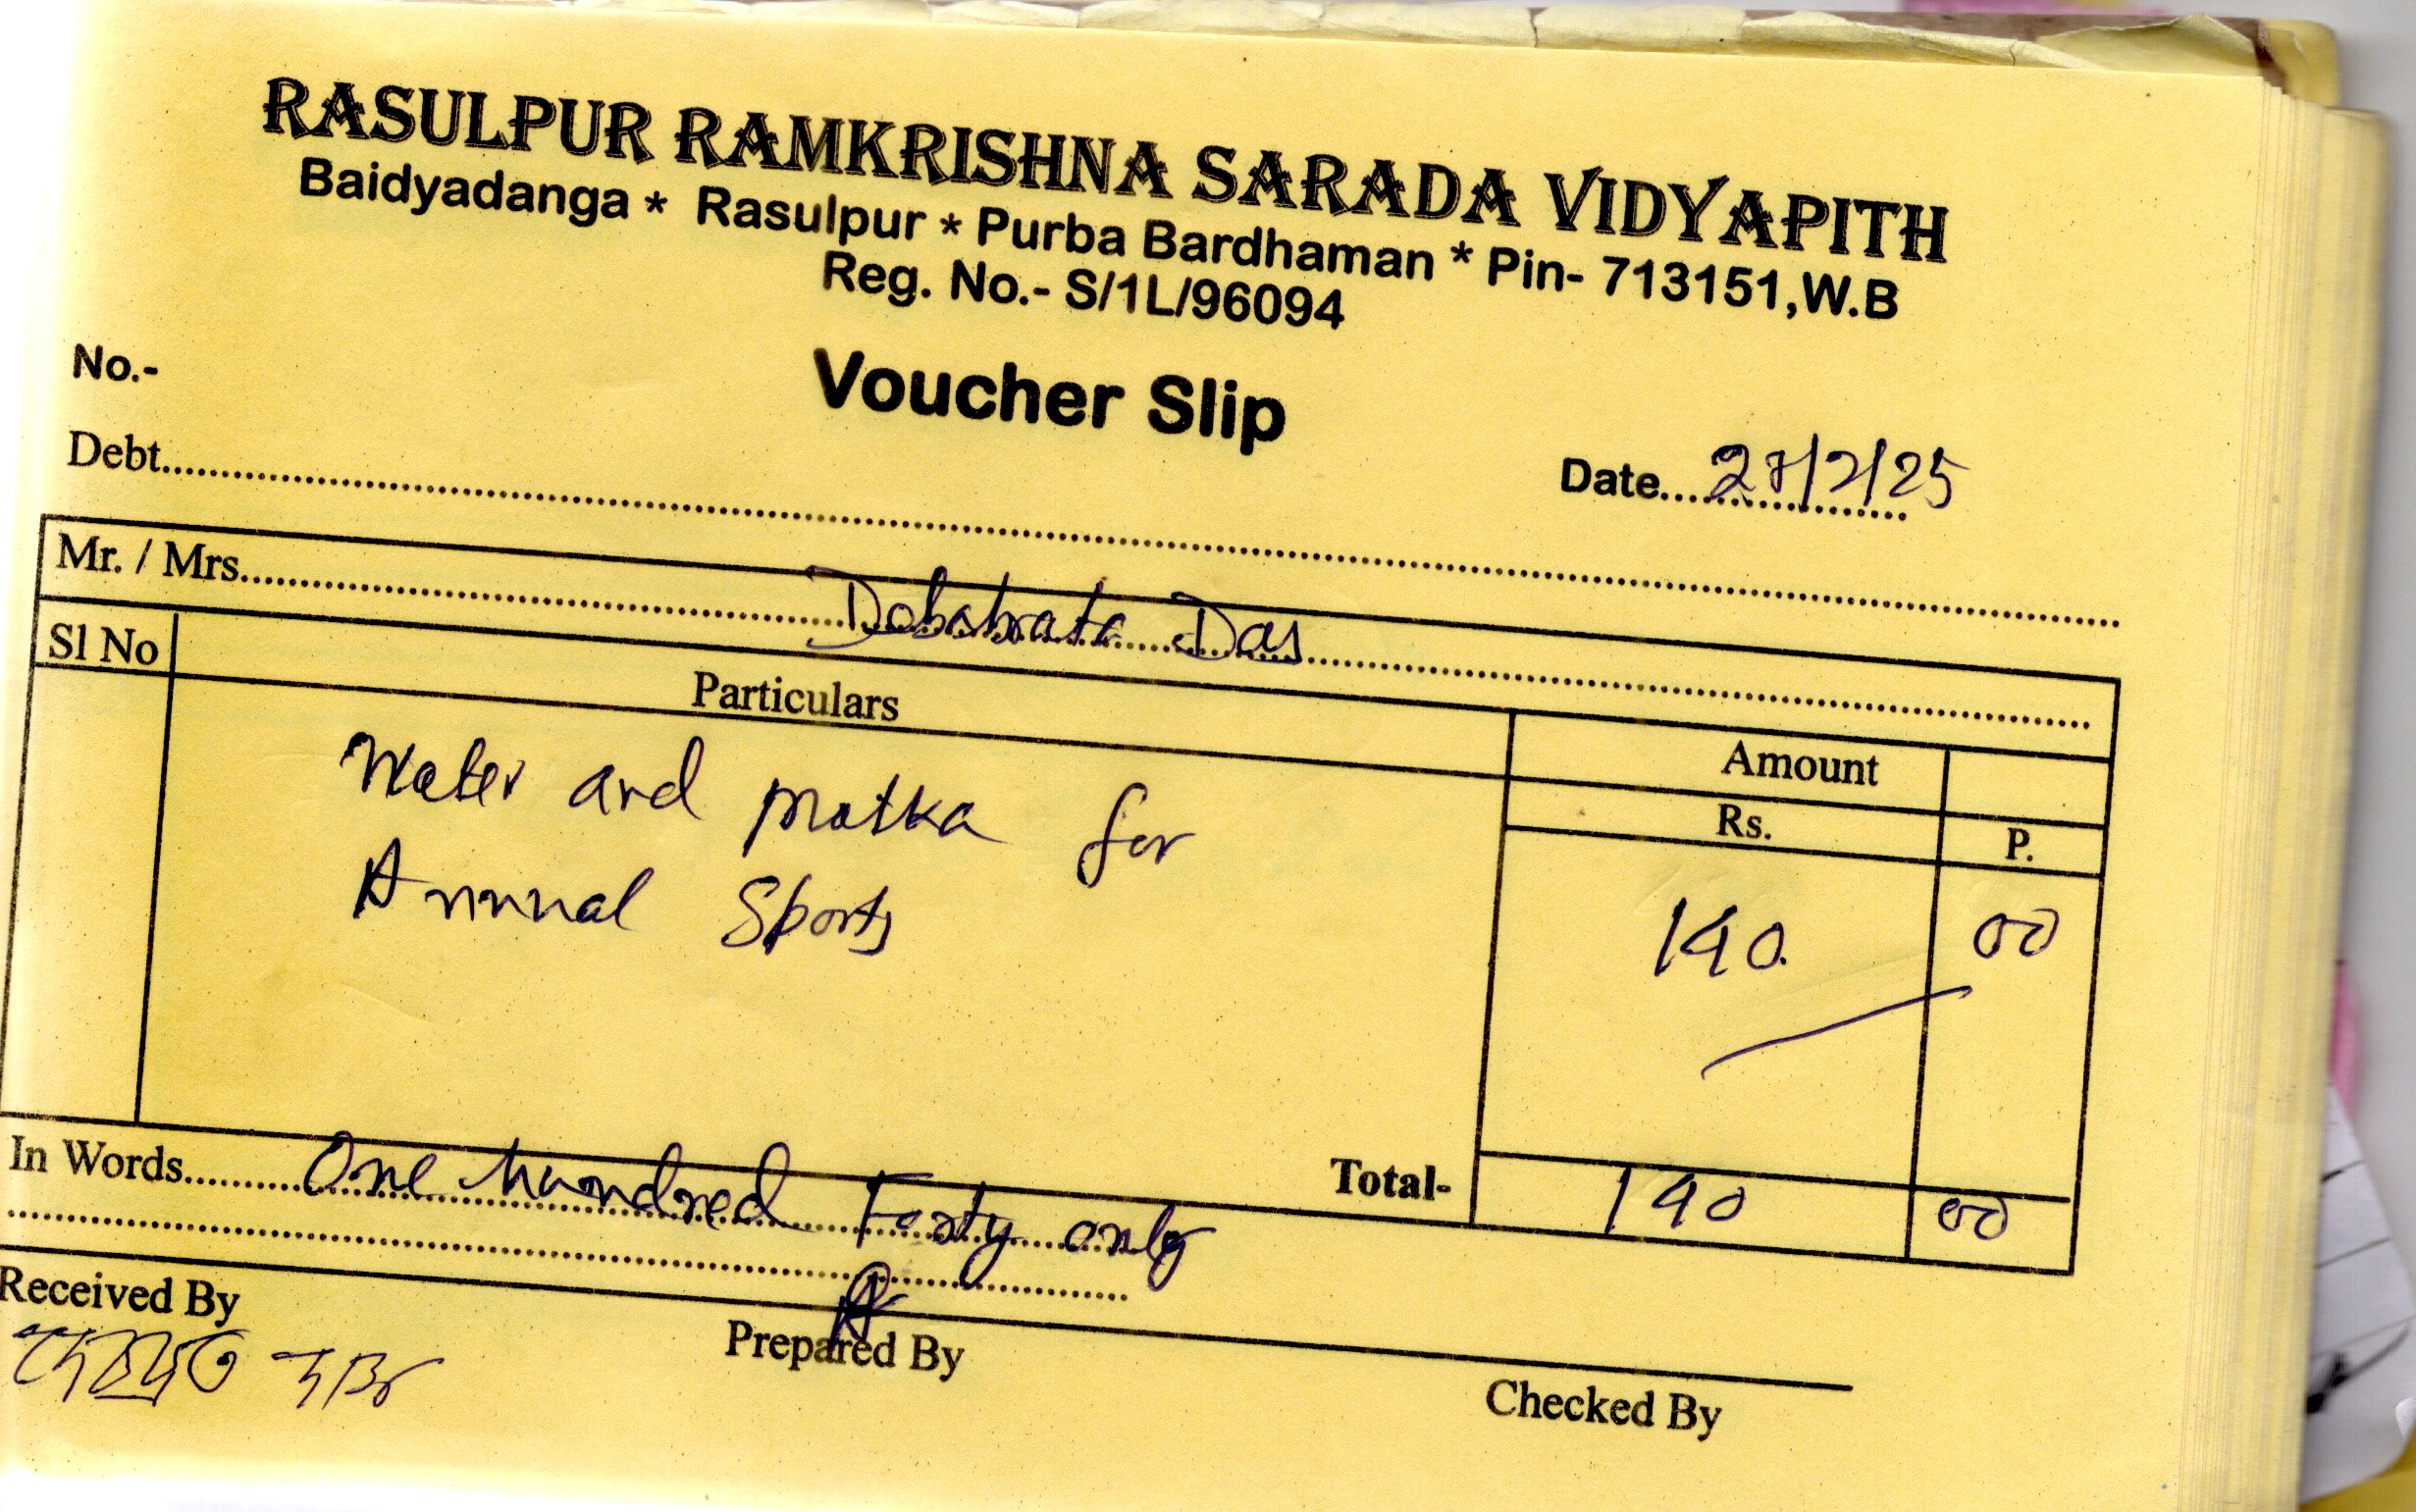 RASULPUR RAMKRISHNA SARADA VIDYAPITH
Baidyadanga * Rasulpur * Purba Bardhaman * Pin- 713151,W.B
Reg. No.- S/1L/96094
No.-
Voucher Slip
Debt
Date 27/2/25
Mr. / Mrs. Debabrata Das
Sl No Particulars Amount
Rs. P.
Water and matka for
Annual Sports
140. 00
Total- 140 00
In Words One hundred Forty only
Received By
Prepared By
Checked By